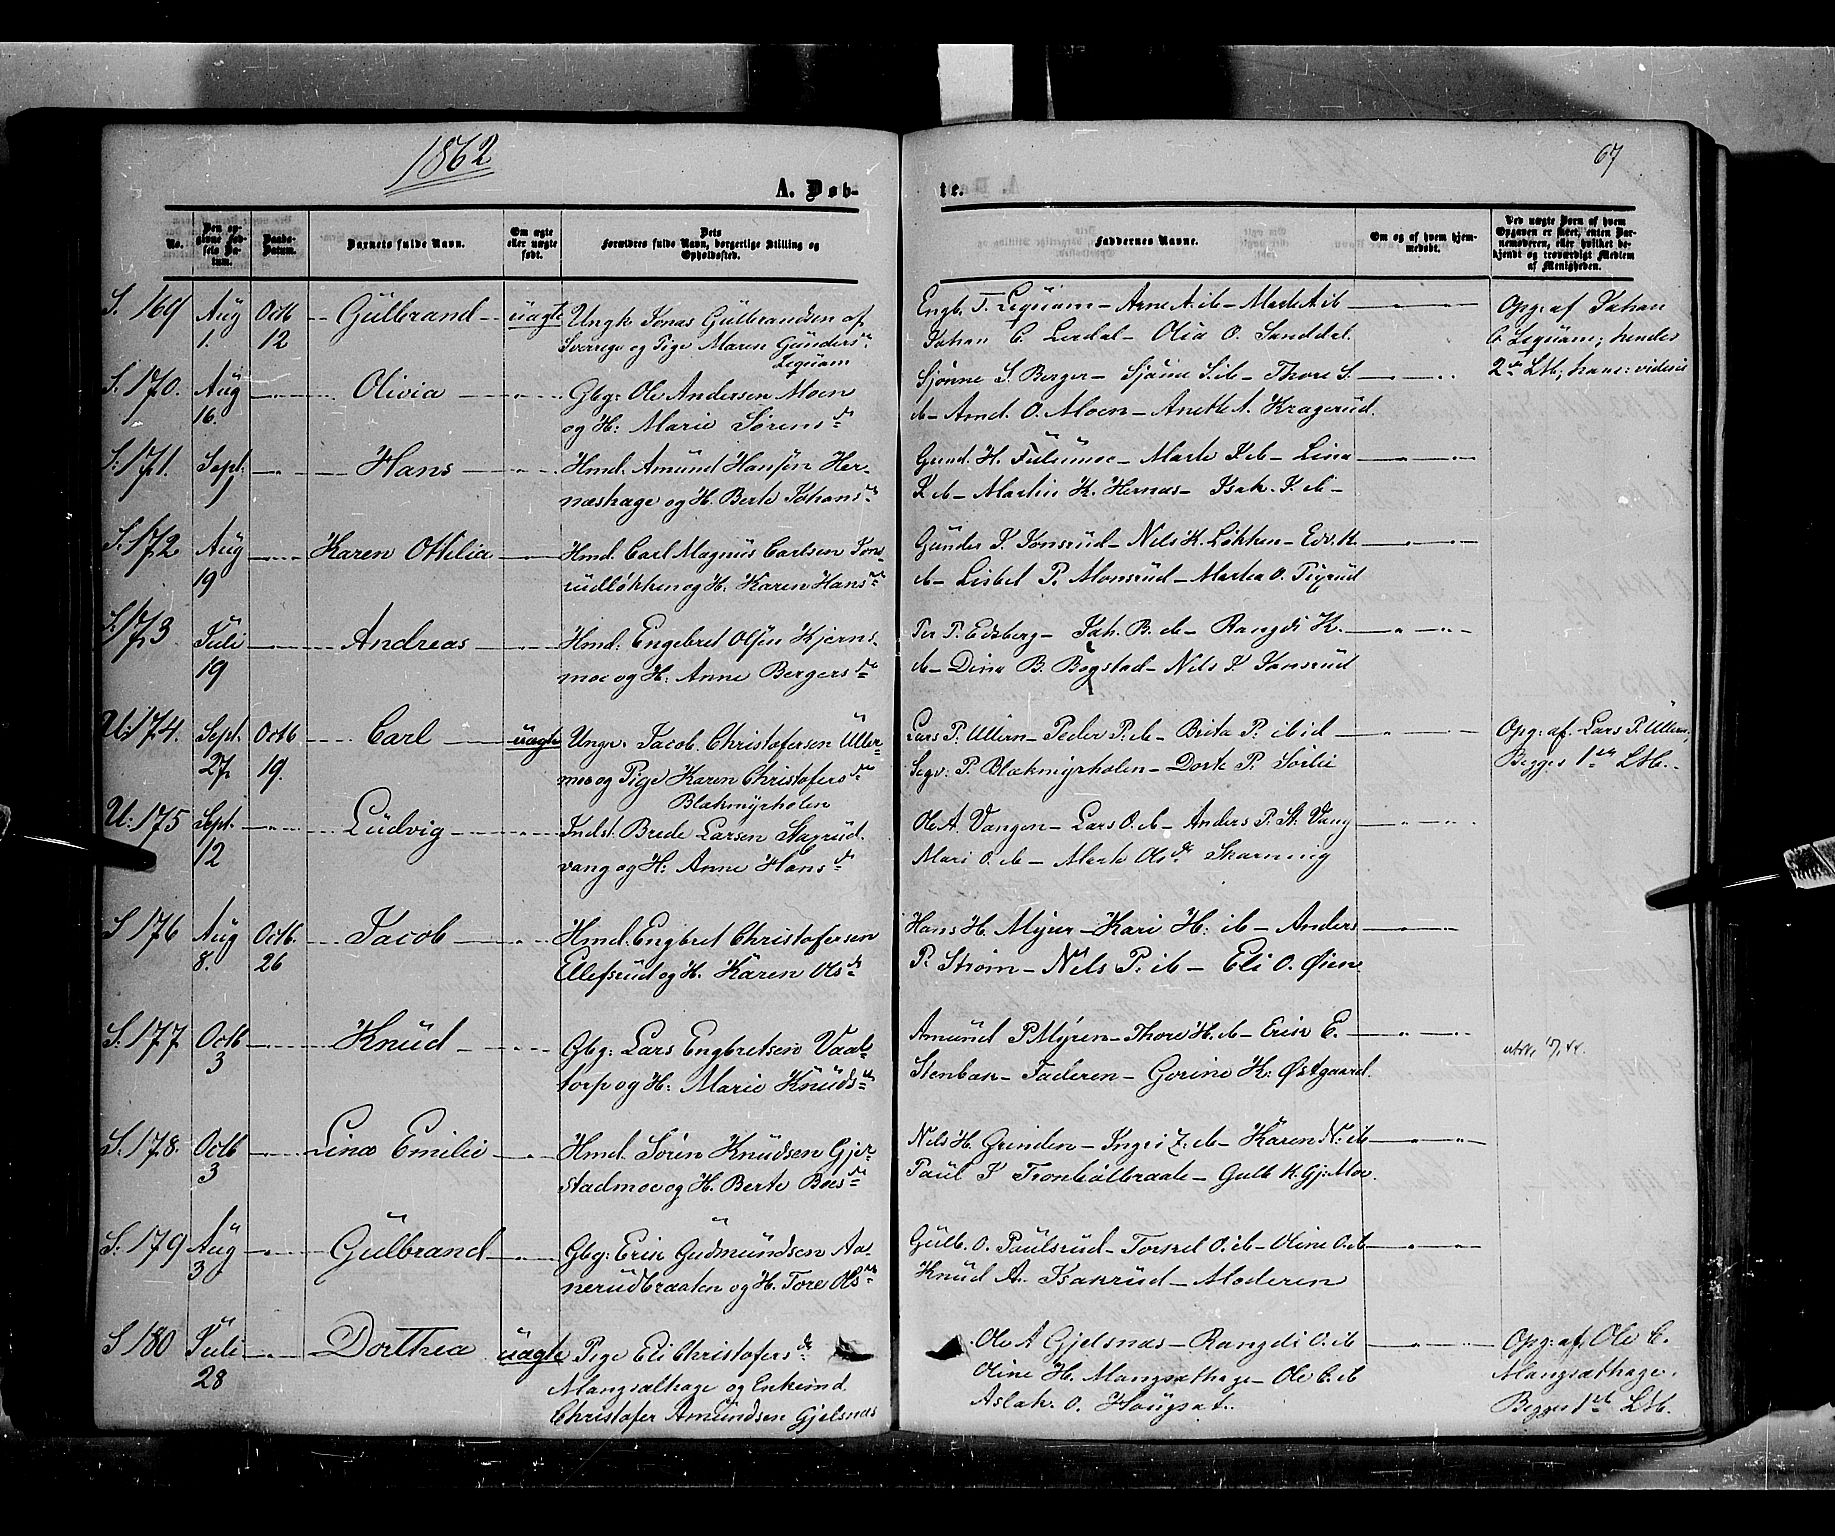 1862
67
A. Døb-
te.
No.
Den op-
givne Fød-
sels Da-
tum.
Daabs-
Datum.
Barnets fulde Navn.
Om ægte
eller uægte
født.
Dets
Forældres fulde Navn, borgerlige Stilling og
Opholdssted.
Faddernes Navne.
Om og af hvem hjem-
medøbt.
Ved uægte Børn af hvem
Opgaven er skeet, enten Bar-
nemoderen, eller hvilket be-
kjendt og troværdigt Medlem
af Menigheden.
S. 169 Aug 1. Octb 12 Gülbrand uægte
Ungk Jonas Gülbrandsen af
Sverrige og Pige Maren Günders d.
Lequam
Engb. T. Lequam - Arne A. ib - Marte A ib
Johan C. Lerdal - Olia O. Sanddal.
Opg: af Johan
C. Lequam; hendes
2det Lb;
S. 170. Aug 16. Olivia
Gbg: Ole Andersen Moen
og H: Marie Sørens d.
Sjønne S. Berger - Sjønne S. ib - Thore S.
ib - Amd. O. Moen - Anette A. Kragerud.
S. 171. Sept. 1 Hans
Hmd. Amünd Hansen Her-
næshage og H. Berte Johans d.
Gund. H. Fulumoe - Marte J. ib - Lina
J. ib - Martin K. Hernæs - Isak. J. ib -
S. 172 Aug 19 Karen Ottilia
Hmd. Carl Magnüs Carlsen Jons-
rüdløkken og H. Karen Hans d.
Günder J. Jonsrüd - Nils K. Løkken - Edv. K
ib - Lisbet P. Monsrüd - Marthea O. Tigrüd
S. 173 Juli 19 Andreas
Hmd: Engebret Olsen Kjerns-
moe og H: Anne Bergers d.
Per P. Edsberg - Joh. B. ib - Rangdi K.
ib - Dina B. Bøgstad - Nils J. Jonsrüd
U. 174. Sept. 27. Octb 19. Carl uægte
Ungk. Jacob Christofersen Üller-
moe og Pige Karen Christofers d.
Blakmyrholen
Lars P. Ullern - Peder P. ib - Brita P. ibid
Segv: P. Blækmyrholen - Dorte P. Sørlie
Opg: af. Lars P. Ullern,
Begges 1ste Lb.
U: 175 Sept. 12 Lüdvig
Indst. Brede Larsen Slagrüd-
vang og H: Anne Hans d.
Ole A. Vangen - Lars O. ib - Anders P. St. Vang
Mari O. ib - Marte Ols d. Skarning
S 176 Aug 8. Octb. 26 Jacob
Hmd. Engbret Christofersen
Ellefsrud og H. Karen Ols d.
Hans H. Myrer - Kari H: ib - Anders
P. Strøm - Nils P. ib - Eli O. Øien
S: 177 Octb 3 Knüd
Gbg: Lars Engbretsen Vaal-
torp og H: Marie Knüds d.
Amünd P Myren - Thore H. ib - Erik E.
Stenbak - Faderen - Gorine K: Østgaard.
S. 178. Octb 3 Lina Emilie
Hmd. Sören Knüdsen Gjer-
stadmoe og H. Berte Boes d.
Nils H. Grinden - Ingri Z. ib - Karen N. ib
Paul J Tronbølbraate - Gulb K. Gj: Moe.
S: 179 Aug 3 Gülbrand
Gbg: Erik Gudmündsen Aa-
nerudbraaten og H. Tore Ols d.
Gülb. O. Paulsrud - Torkel O. ib - Oline O. ib
Knüd A. Isakrüd - Moderen
S 180 Juli 28 Dorthea uægte
Pige Eli Christofers d.
Mangsæthage og Enkemd.
Christofer Amündsen Gjelsnæs
Ole A Gjelsnæs - Rangdi O. ib
Oline H. Mangsæthage - Ole C. ib
Aslak. O. Haügsæt.
Opg: af. Ole C.
Mangsæthage.
Begges 1ste Lb.